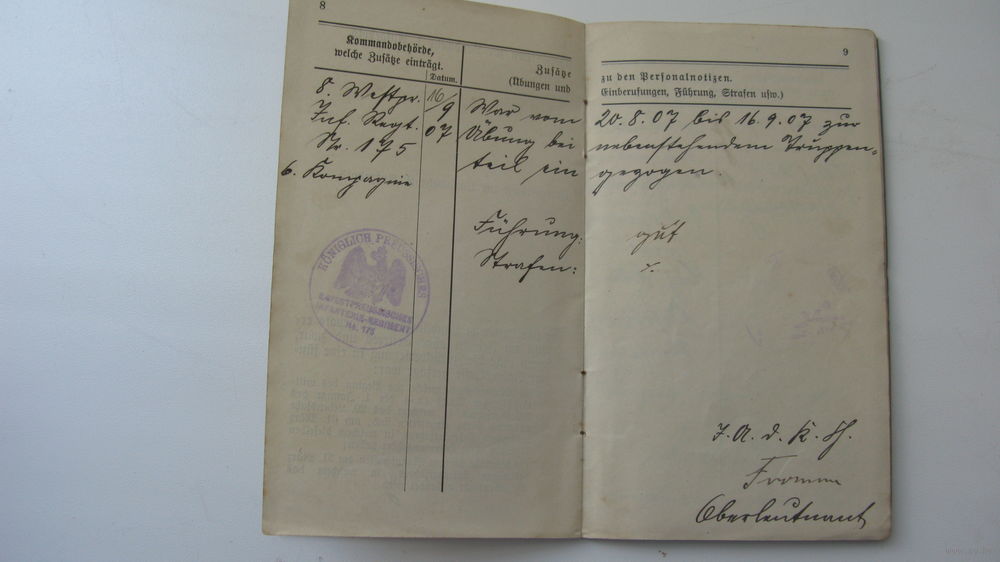 8
Kommandobehörde,
welche Zusätze einträgt.
Datum.
Zusätze
(Übungen und
8. Westpr.
Inf. Regt.
Nr. 175
6. Kompagnie
16/9
07
War vom
Übung bei
teil ein
Führung:
Strafen:
KÖNIGLICH PREUSSISCHES
8. WESTPREUSSISCHES
INFANTERIE-REGIMENT
No. 175
9
zu den Personalnotizen.
Einberufungen, Führung, Strafen usw.)
20.8.07 bis 16.9.07 zur
nebenstehendem Truppen-
gezogen.
gut
I. A. d. K. Ch.
Fromm
Oberleutnant